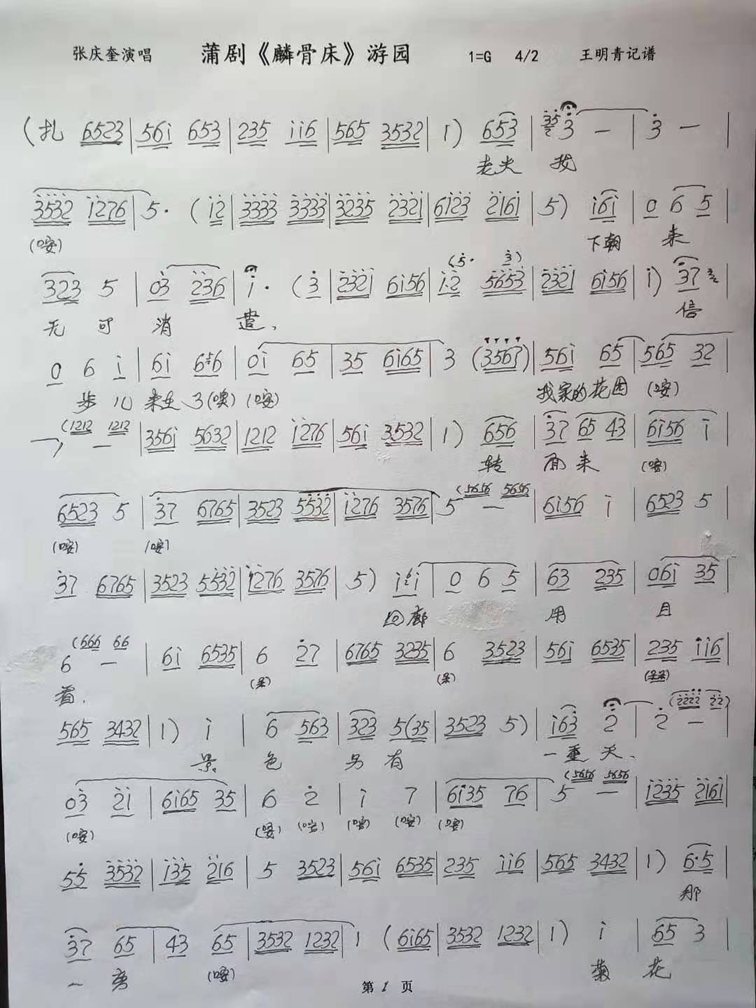 张庆奎演唱 蒲剧《麟骨床》游园 1=G 4/2 王明青记谱
(扎 6523 | 56i 653 | 235 ii6 | 565 3532 | 1) 653 | 3 — | 3 —
老夫 我
3532 1276 | 5· (12 | 3333 3333 | 3235 2321 | 6123 2161 | 5) i6i | 0 6 5
(哎) 下朝 来
323 5 | 03 236 | i· (3 | 2321 6156 | i·2 5653 | 2321 6156 | i) 37
无可 消 遣、 信
0 6 i | 6i 6 6 | 0i 65 | 35 6i65 | 3 (3567) | 56i 65 | 565 32
步儿 来至了(唉)(哎) 我家的花园 (哎)
(1212 1212) — | 356i 5632 | 1212 1276 | 56i 3532 | 1) 656 | 37 65 43 | 6156 i
转 面来 (哎)
6523 5 | 37 6765 | 3523 5532 | 1276 3576 | 5 (5656 5656) — | 6156 i | 6523 5
(哎) (哎)
37 6765 | 3523 5532 | 1276 3576 | 5) i i | 0 6 5 | 63 235 | 06i 35
回廊 用 目
6 (666 66) — | 6i 6535 | 6 27 | 6765 3235 | 6 3523 | 56i 6535 | 235 ii6
看、
565 3432 | 1) i | 6 563 | 323 5(35 | 3523 5) | i63 2 | 2 (2222 22) —
景 色 另有 一重天、
03 2i | 6i65 35 | 6 2 | i 7 | 6i35 76 | 5 (5656 5656) — | 1235 2161
(哎) (哎) (哎) (哎) (哎) (哎)
55 3532 | i35 216 | 5 3523 | 56i 6535 | 235 ii6 | 565 3432 | 1) 6·5
那
37 65 | 43 65 | 3532 1232 | 1 (6i65 | 3532 1232 | 1) i | 65 3
一旁 (哎) 菊 花
第 1 页